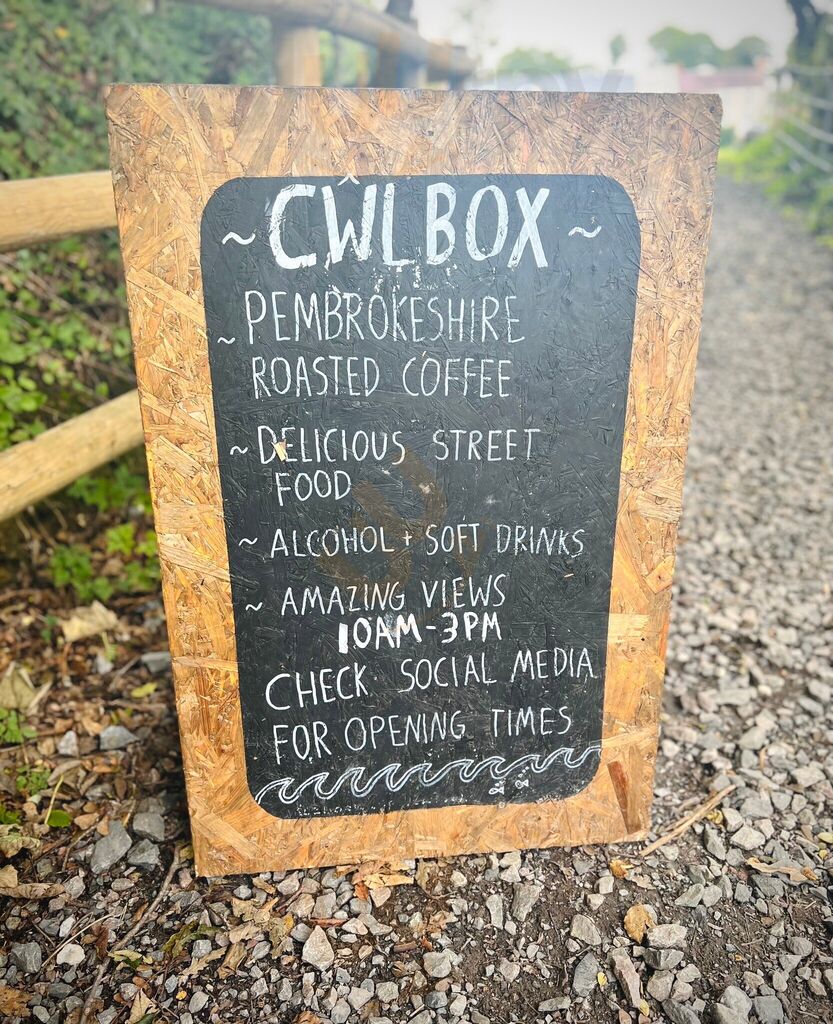 ~ CŴLBOX ~
~ PEMBROKESHIRE
ROASTED COFFEE
~ DELICIOUS STREET
FOOD
~ ALCOHOL + SOFT DRINKS
~ AMAZING VIEWS
10AM-3PM
CHECK SOCIAL MEDIA
FOR OPENING TIMES